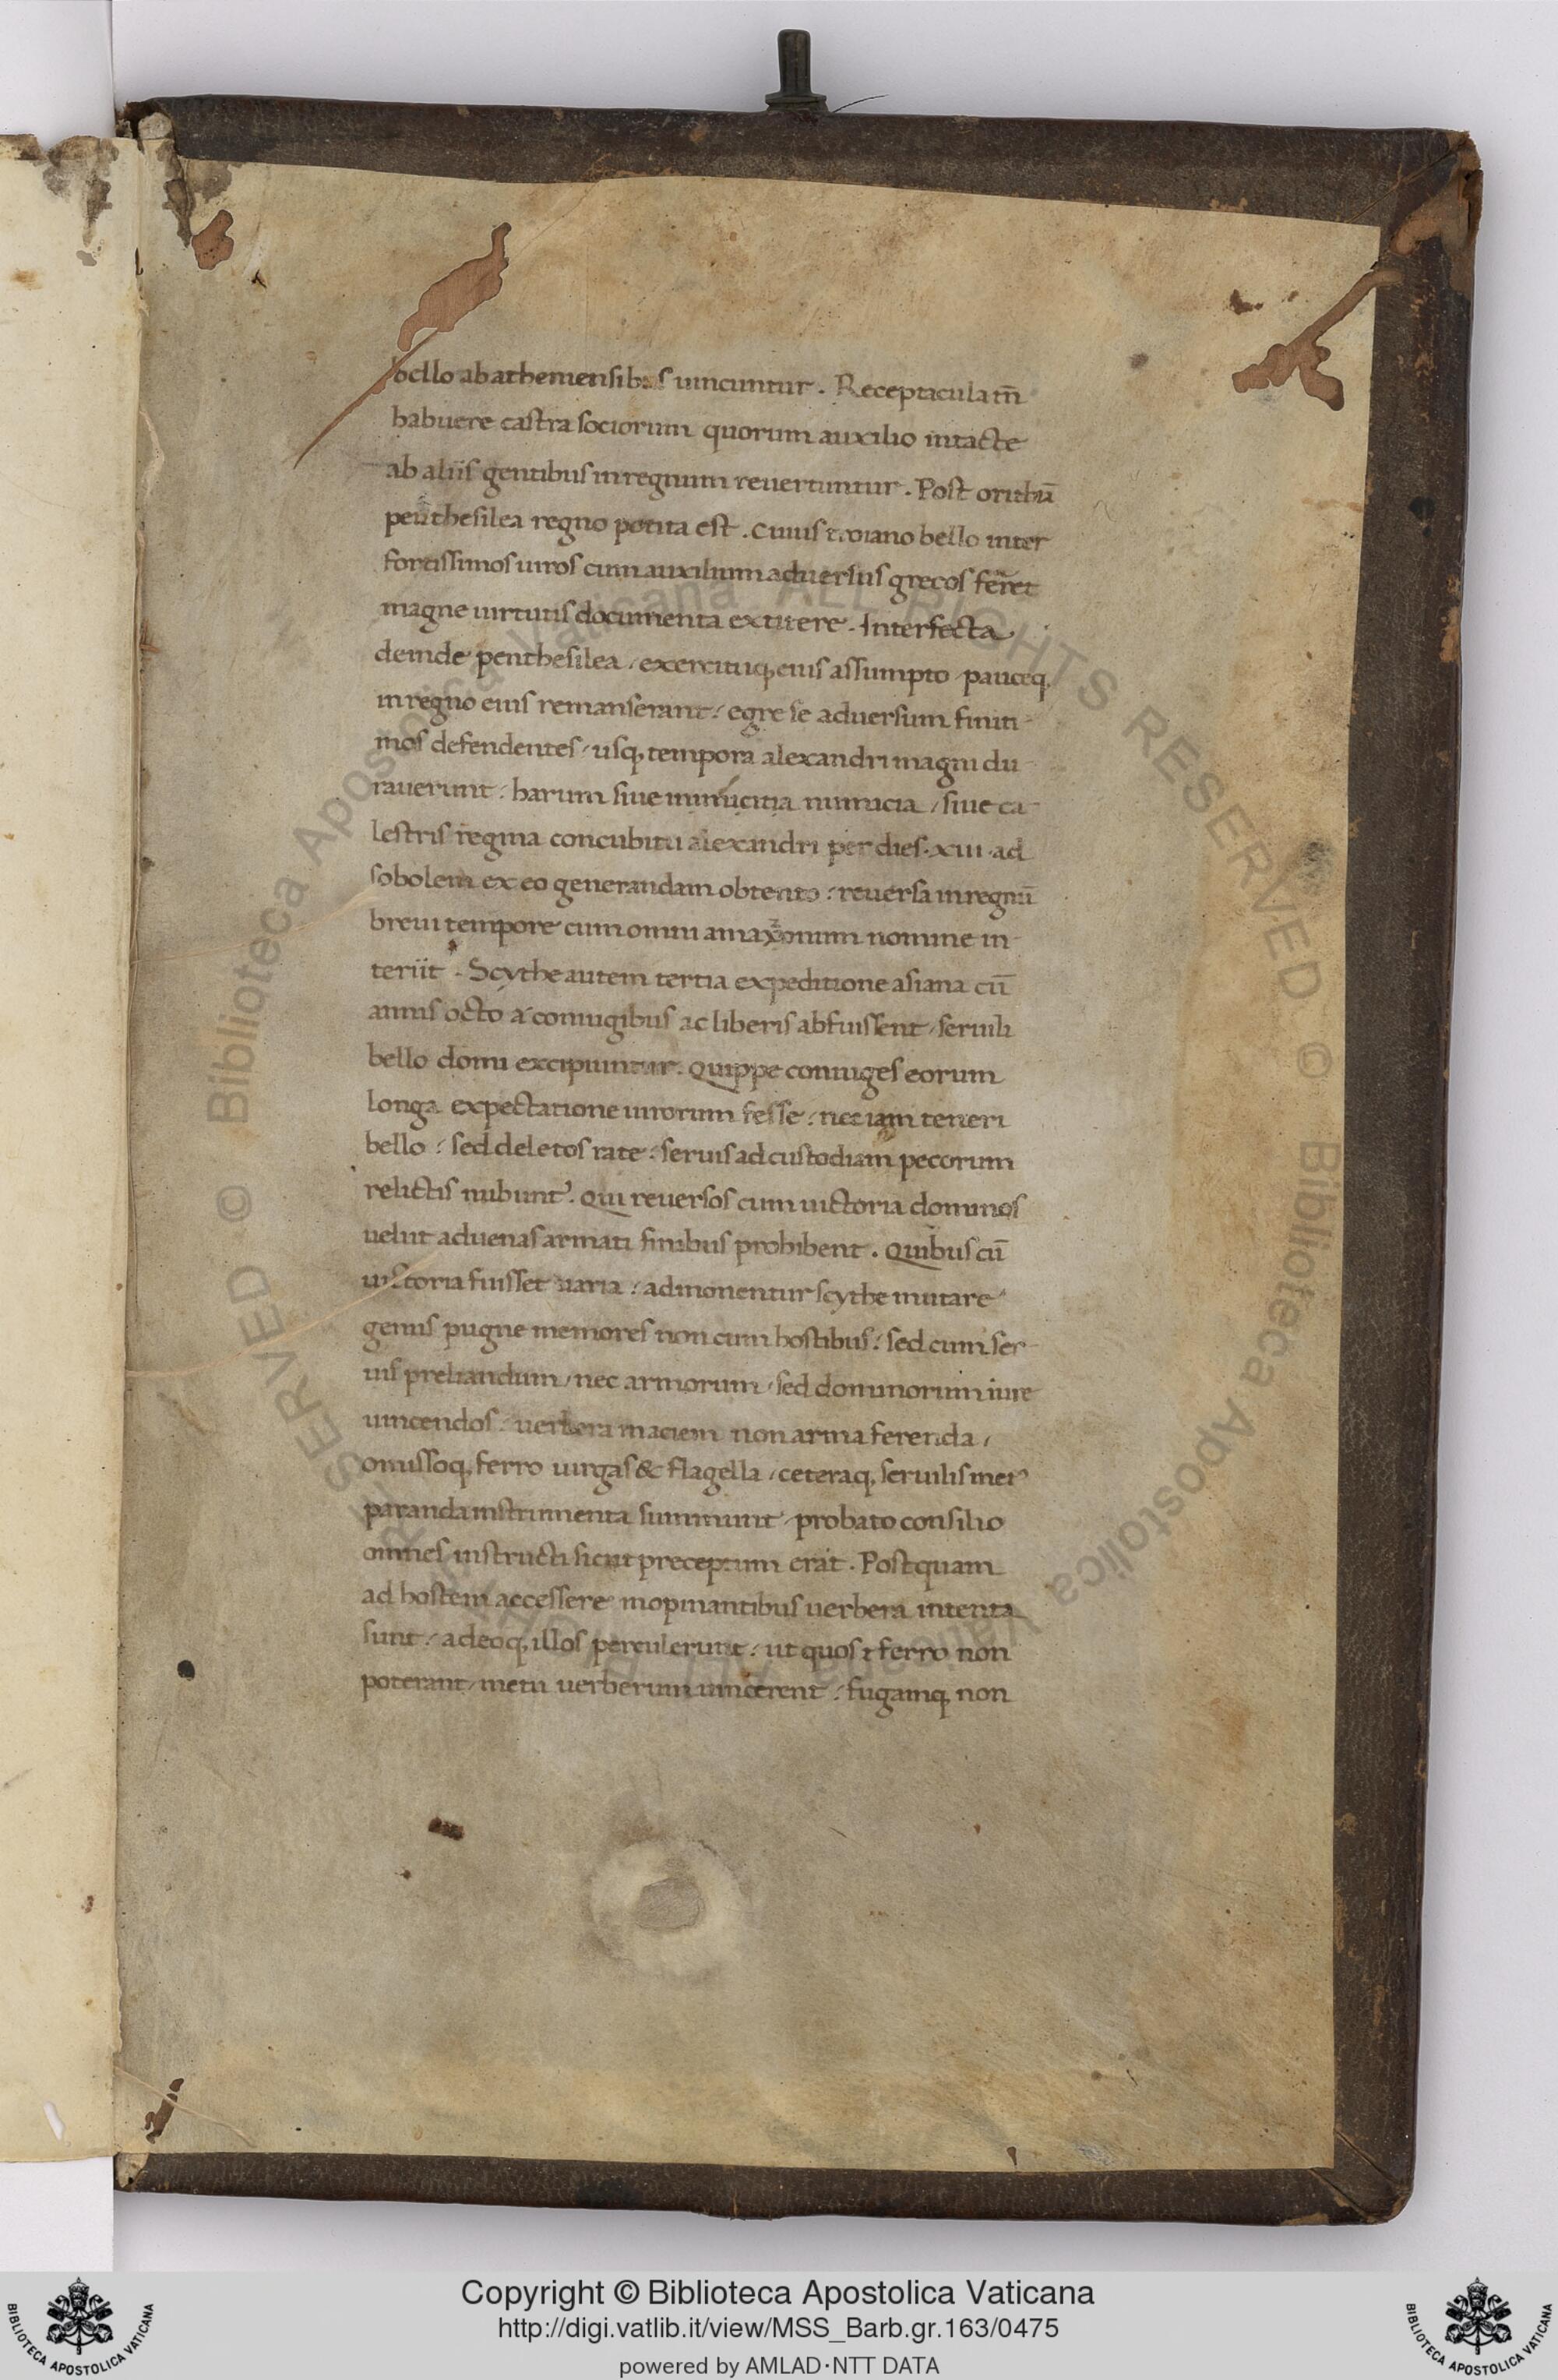 bello ab atheniensibus uincuntur. Receptacula tn̄
habuere castra sociorum quorum auxilio intacte
ab aliis gentibus in regnum reuertuntur. Post orithiā
penthesilea regno potita est. Cuius troiano bello inter
fortissimos uiros cum auxilium aduersus grecos ferret
magne uirtutis documenta extitere. Interfecta
deinde penthesilea / exercituq; eius assumpto / pauceq;
in regno eius remanserant: egre se aduersum finiti-
mos defendentes / usq; tempora alexandri magni du-
rauerunt: harum siue minucitia minucia / siue ca-
lestris regina concubitu alexandri per dies .xiii. ad
sobolem ex eo generandam obtento: reuersa in regnū
breui tempore cum omni amaxonum nomine in-
teriit. Scythe autem tertia expeditione asiana cū
annis octo a coniugibus ac liberis abfuissent / seruili
bello domi excipiuntur. Quippe coniuges eorum
longa expectatione uirorum fesse: nec iam teneri
bello: sed deletos rate: seruis ad custodiam pecorum
relictis nubunt'. Qui reuersos cum uictoria dominos
uelut aduenas armati finibus prohibent. Quibus cū
uictoria fuisset uaria: admonentur scythe mutare
genus pugne memores non cum hostibus: sed cum ser-
uis preliandum / nec armorum / sed dominorum iure
uincendos: uerbera in aciem non arma ferenda /
omissoq; ferro uirgas & flagella / ceteraq; seruilis met'
paranda instrumenta summunt / probato consilio
omnes instructi sicut preceptum erat. Postquam
ad hostem accessere inopinantibus uerbera intenta
sunt: adeoq; illos perculerunt: ut quos ferro non
poterant / metu uerberum uincerent: fugamq; non
Copyright © Biblioteca Apostolica Vaticana
http://digi.vatlib.it/view/MSS_Barb.gr.163/0475
powered by AMLAD·NTT DATA
BIBLIOTECA APOSTOLICA VATICANA
BIBLIOTECA APOSTOLICA VATICANA